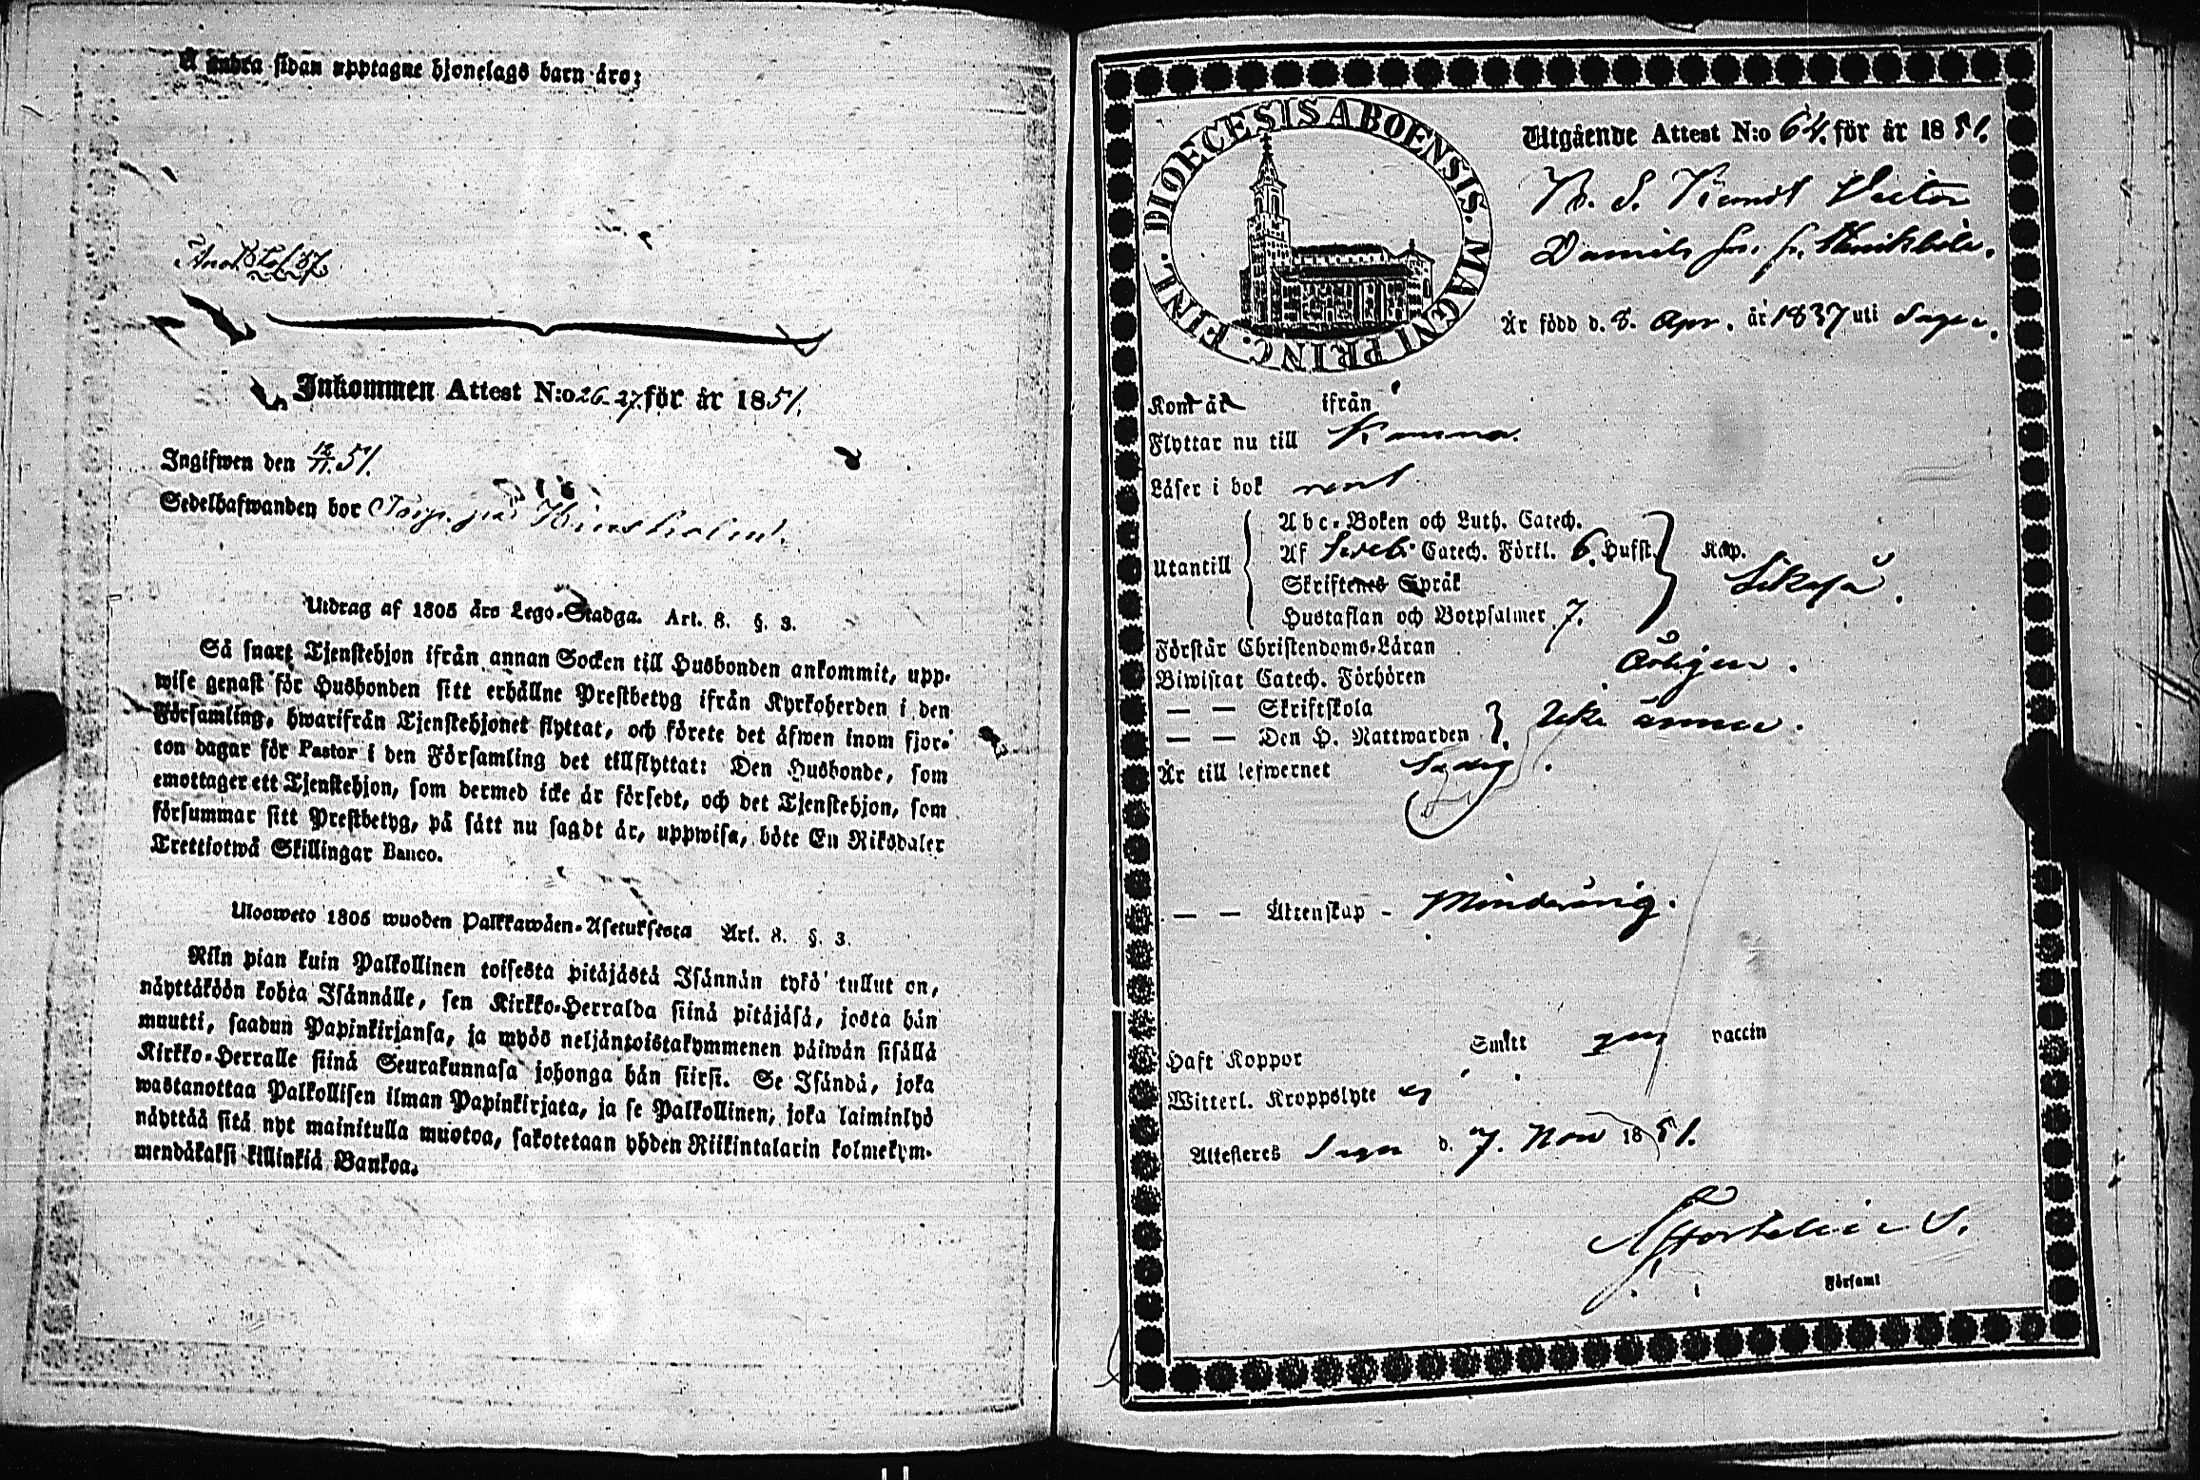 Å andra sidan upptagne hjonelags barn äro;
Inkommen Attest N:o 26-27. för år 1851.
Ingifwen den 12/11. 51.
Sedelhafwanden bor
Utdrag af 1805 års Lego-Stadga. Art. 8. §. 3.
Så snart Tjenstehjon ifrån annan Socken till Husbonden ankommit, upp-
wise genast för Husbonden sitt erhållne Prestbetyg ifrån Kyrkoherden i den
Församling, hwarifrån Tjenstehjonet flyttat, och förete det äfwen inom fjor-
ton dagar för Pastor i den Församling det tillflyttat: Den Husbonde, som
emottager ett Tjenstehjon, som dermed icke är försedt, och det Tjenstehjon, som
försummar sitt Prestbetyg, på sätt nu sagdt är, uppwisa, böte En Riksdaler
Trettiotwå Skillingar Banco.
Ulosweto 1805 wuoden Palkkawäen-Asetuksesta Art. 8. §. 3.
Niin pian kuin Palkollinen toisesta pitäjästä Isännän tykö tullut on,
näyttäköön kohta Isännälle, sen Kirkko-Herralda siinä pitäjäsä, josta hän
muutti, saadun Papinkirjansa, ja myös neljäntoistakymmenen päiwän sisällä
Kirkko-Herralle siinä Seurakunnasa johonga hän siirsi. Se Isändä, joka
wastanottaa Palkollisen ilman Papinkirjata, ja se Palkollinen, joka laiminlyö
näyttää sitä nyt mainitulla muotoa, sakotetaan yhden Riikintalarin kolmekym-
mendäkaksi killinkiä Bankoa.
DIOECESIS ABOENSIS. MAGNI PRINC. FINL.
Utgående Attest N:o 64. för år 1851.
Victor
Daniels
Är född d. 8. Apr. år 1837 uti Sagu.
Kom år ifrån
Flyttar nu till
Läser i bok rent.
Utantill
Abc-Boken och Luth. Catech.
Af Sveb. Catech. Förkl. 6. Hufst. Kap.
Skriftenes Språk
Hustaflan och Botpsalmer 7.
Förstår Christendoms-Läran
Biwistat Catech. Förhören Årligen.
— — Skriftskola
— — Den H. Nattwarden
Är till lefwernet
— — Ägtenskap - Minderårig.
Haft Koppor Smitt vaccin
Witterl. Kroppslyte ej
Attesteres Sagu d. 7. Nov 1851.
Församl